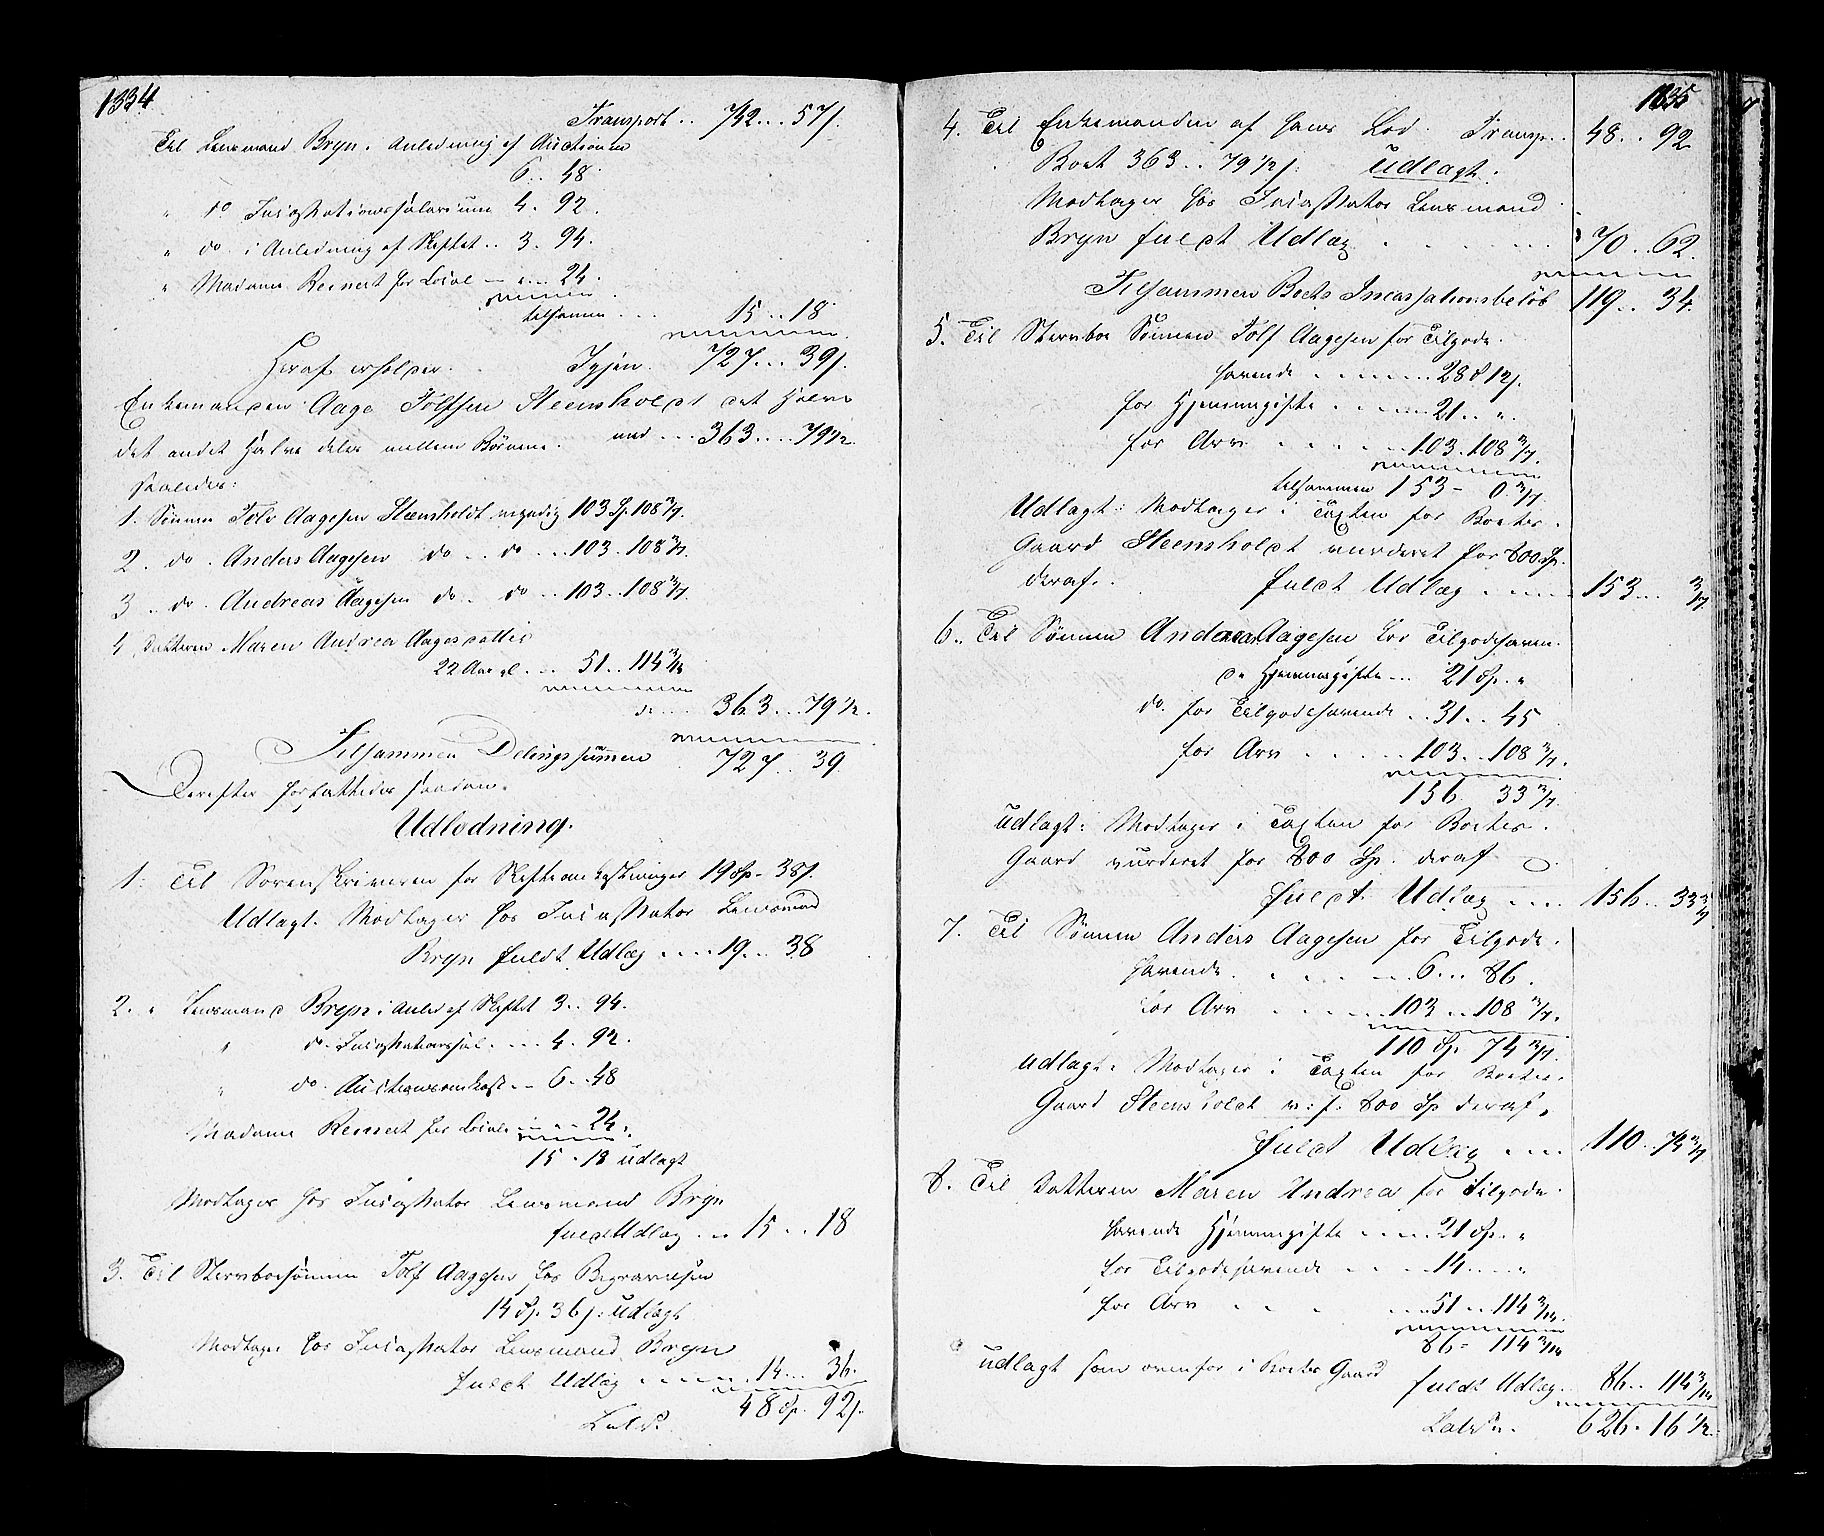 1334
Transport .. 742 ... 57/.
Til Lensmand Bryn i Anledning af Auctionen
6 .. 48
" do Incassationssalarium 4 . 92.
" do . i Anledning af Skiftet .. 3 . 94.
" Madame Reinert for Locale — " .. 24.
tilsammen ... 15 .. 18
Igjen 727 ... 39/.
Heraf erholder
Enkemanden Aage Tolfsen Steensholdt det Halve
med ... 363 .... 79 1/2.
det andet Halve deles mellem Børnene
saaledes:
1. Sønnen Tolv Aagesen Steensholdt myndig 103 Sp. 108 3/7.
2. do . Anders Aagesen do .. do ... 103 . 108 3/7.
3 .. do . Andreas Aagesen do .. do ... 103 .. 108 3/7.
4. Datteren Maren Andrea Aagesdatter
22 Aar gl. ... 51 .. 114 3/14
363 ... 79 1/2.
Tilsammen Delingssummen 727 .. 39.
Derefter forfattedes saadan
Udlodning.
1. Til Sorenskriveren for Skifteomkostninger 19 Sp - 38/.
Udlagt. Modtager hos Incassator Lensmand
Bryn fuldt Udlæg .... 19 ... 38
2. " Lensmand Bryn i Anled af Skiftet 3 .. 94.
" do. Incassationssal. .... 4 . 92.
" do. Auctionsomkost. .. 6 .. 48
Madame Reinert for Locale .... 24.
15 . 18 udlagt
Modtager hos Incassator Lensmand Bryn
fuldt Udlæg .. 15 .. 18
3. Til Stervboesønnen Tolf Aagesen for Begravelsen
14 Sp. 36 /: udlagt
Modtager hos Incassator Lensmand Bryn
fuldt Udlæg ...... 14 ... 36.
Lateris 48 Sp. 92/.
1335
4. Til Enkemanden af hans Lod . Transp .. 48 .. 92
Boet 363 .. 79 1/2 /: Udlagt.
Modtager hos Incassator Lensmand
Bryn fuldt Udlæg ...... 70 .. 62.
Tilsammen Boets Incassationsbeløb 119 .. 34.
5. Til Stervboe Sønnen Tolf Aagesen for Tilgode-
havende ....... 28 S 12/.
for Hjemmegifte ....... 21 .. "
for Arv ...... 103 . 108 3/7.
tilsammen 153 - 0 3/7
Udlagt: Modtager i Taxten for Boets
Gaard Steensholdt vurderet for 800 Sp.
deraf. fuldt Udlæg ..... 153 ... 3/7
6. Til Sønnen Andreas Aagesen for Tilgodehaven-
de Hjemmegifte ... 21 Sp. "
do. for Tilgodehavende .. 31 .. 45
for Arv ..... 103 .. 108 3/7.
156 33 3/7
udlagt: Modtager i Taxten for Boets
Gaard vurderet for 800 Sp. deraf
fuldt Udlæg .... 156 .. 33 3/7
7. Til Sønnen Anders Aagesen for Tilgode-
havende ..... 6 ... 86.
for Arv ...... 103 .. 108 3/7.
110 Sp 74 3/7.
udlagt. Modtager i Taxten for Boets
Gaard Steensholdt v: f: 800 Sp deraf
fuldt Udlæg .... 110 .. 74 3/7
8. Til Datteren Maren Andrea for Tilgode-
havende Hjemmegifte ..... 21 Sp. "
for Tilgodehavende ..... 14 ..... "
for Arv ..... 51 .. 114 3/14.
86 = 114 3/14
udlagt som ovenfor i Boets Gaard
fuldt Udlæg .. 86 .. 114 3/14
Lateris. 626 . 16 1/2.